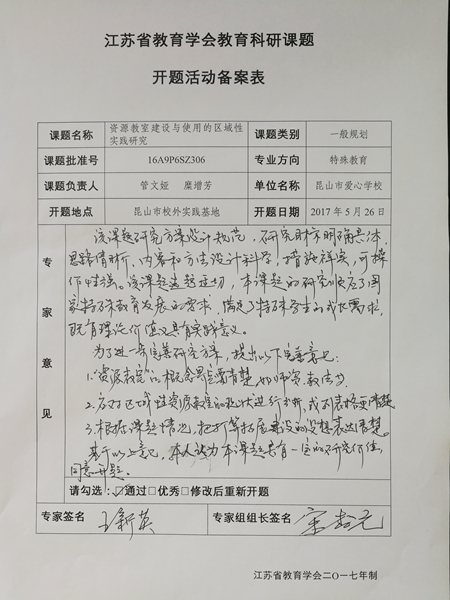 江苏省教育学会教育科研课题
开题活动备案表
课题名称 资源教室建设与使用的区域性实践研究 课题类别 一般规划
课题批准号 16A9P6SZ306 专业方向 特殊教育
课题负责人 管文娅 糜增芳 单位名称 昆山市爱心学校
开题地点 昆山市校外实践基地 开题日期 2017年5月26日
专家意见
该课题研究方案设计规范,研究目标明确具体,
思路清晰、内容和方法设计科学,措施详实,可操
作性强。该课题选题适切,本课题的研究顺应了国
家特殊教育发展的需求,满足了特殊学生的成长需求,
既有理论价值又具有实践意义。
为了进一步完善研究方案,提出以下完善意见:
1."资源教室"的概念界定要清楚,如师资、教法等
2.应对区域性资源教室的现状进行分析,或列表格更清楚
3.根据课题情况,把打算拓展建设的设想表达清楚。
基于以上意见,本人认为本课题具有一定的研究价值,
同意开题。
请勾选:☑通过□优秀□修改后重新开题
专家签名 王新英 专家组组长签名
江苏省教育学会二〇一七年制